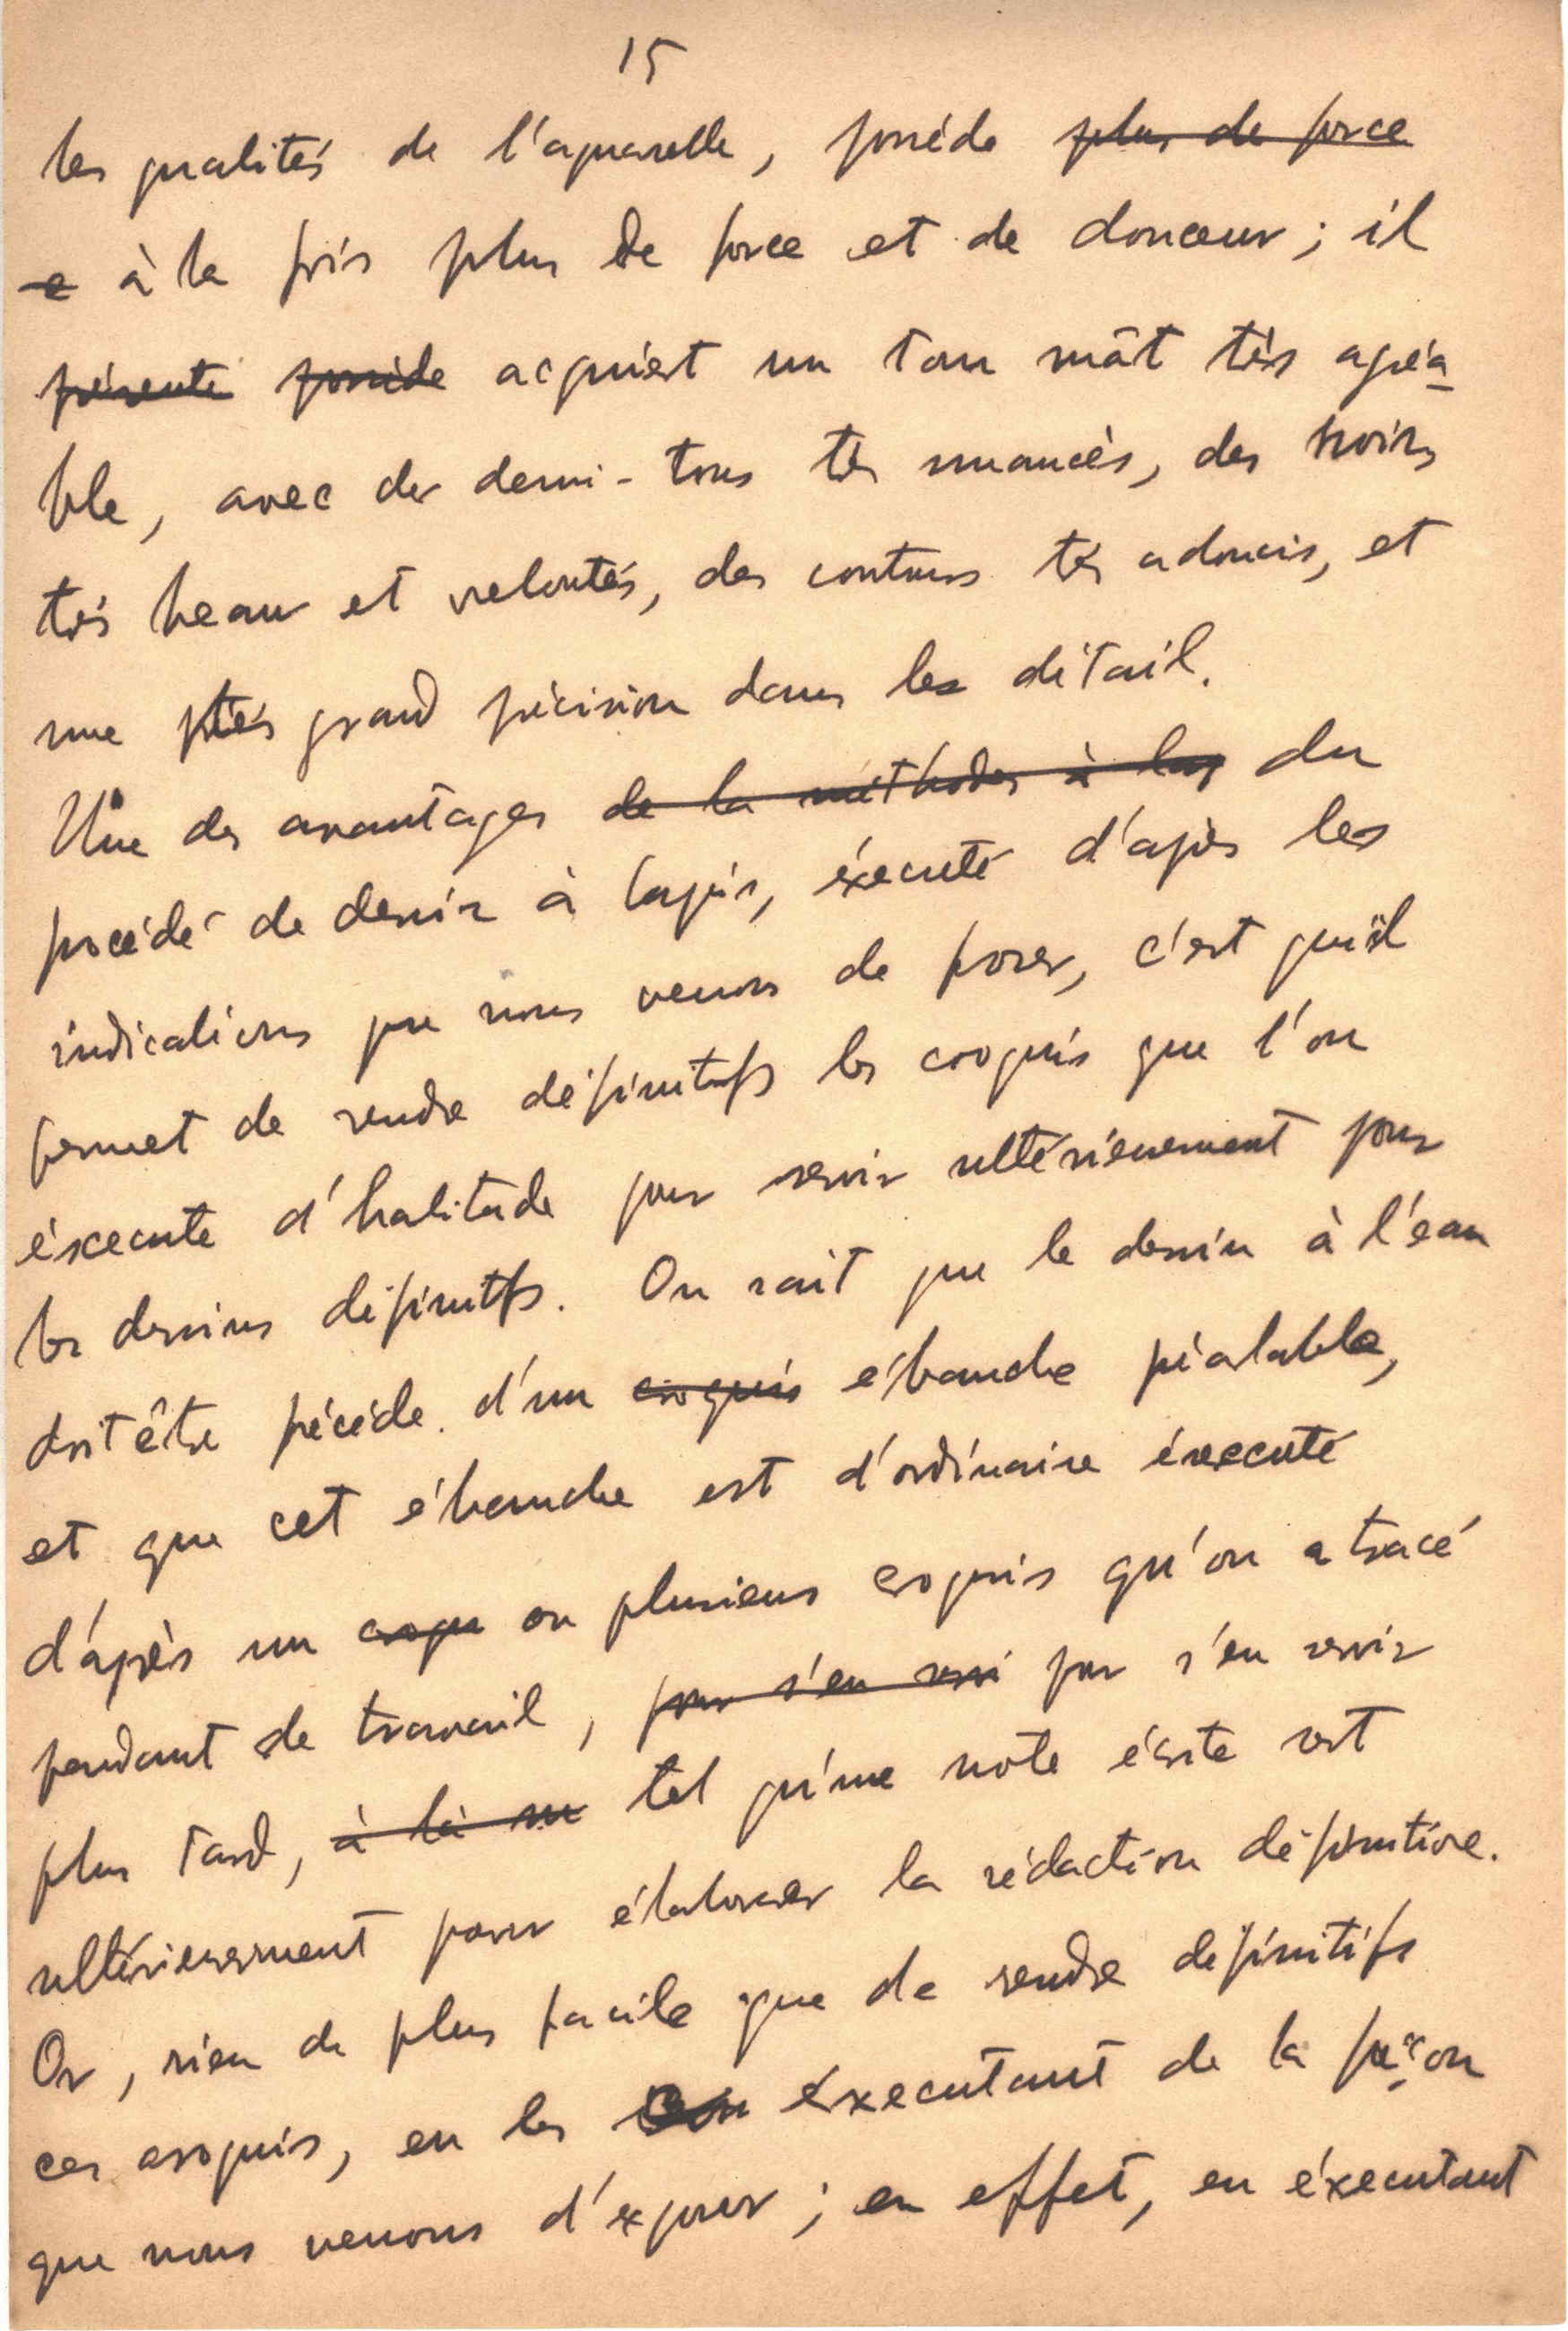 15
les qualités de l'aquarelle, possède ~~plus de force~~
~~e~~ à la fois plus de force et de douceur ; il
~~présente~~ ~~possède~~ acquiert un ton mât très agréa
ble, avec des demi-tons très nuancès, des noirs
très beaux et veloutés, des contours très adoucis, et
une très grand précision dans les détail.
Une des avantages ~~de la méthodes à lap~~ du
procédé de dessin à lapis, éxecuté d'après les
indications que nous venons de poser, c'est qu'il
permet de rendre définitifs les croquis que l'on
éxecute d'habitude pour servir ultérieurement pour
les dessins définitfs. On sait que le dessin à l'eau
doit être précéde d'un ~~croquis~~ ébauche préalable,
et que cet ébauche est d'ordinaire éxecuté
d'après un ~~croqu~~ ou plusieurs croquis qu'on a tracé
pendant de travail, ~~pour s'en servi~~ pour s'en servir
plus tard, ~~à la m~~ tel qu'une note écrite sert
ultérieurement pour élaborer la rédaction définitive.
Or, rien de plus facile que de rendre définitifs
ces croquis, en les éxecutant de la façon
que nous venons d'exposer ; en effet, en éxecutant